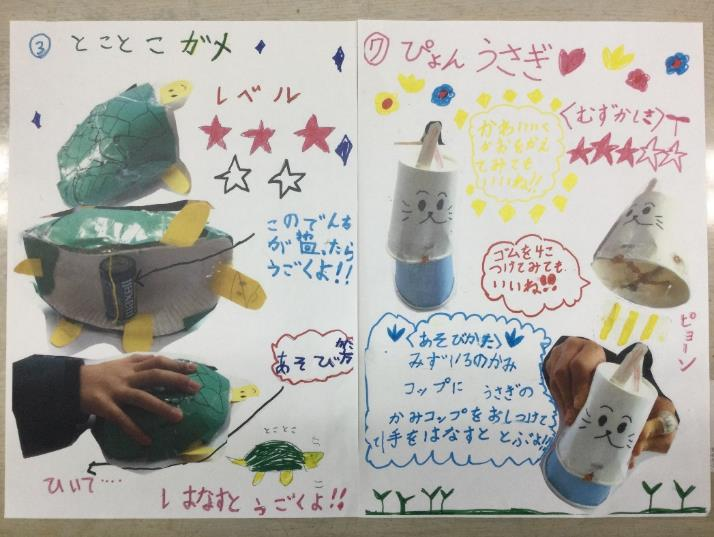 ③ とことこ ガメ
レベル
このでんち
が
うごくよ!!
maxell
あそびかた
とことこ
ひいて‥‥
はなすと うごくよ!!
⑦ ぴょん うさぎ
かわいく
かおをかえ
てみても
いいね!!
<むずかしさ>
ゴムを4こ
つけてみても
いいね!!
ピョーン
<あそびかた>
みずいろのかみ
コップに うさぎの
かみコップをおしつけて
手をはなすと とぶよ!!